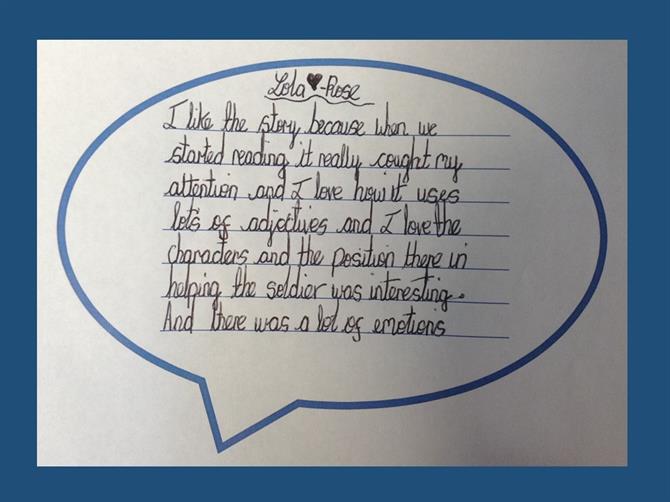 Lola♥-Rose
I like the story because when we
started reading it really cought my
attention and I love how it uses
lots of adjectives and I love the
characters and the position there in
helping the soldier was interesting.
And there was a lot of emotions